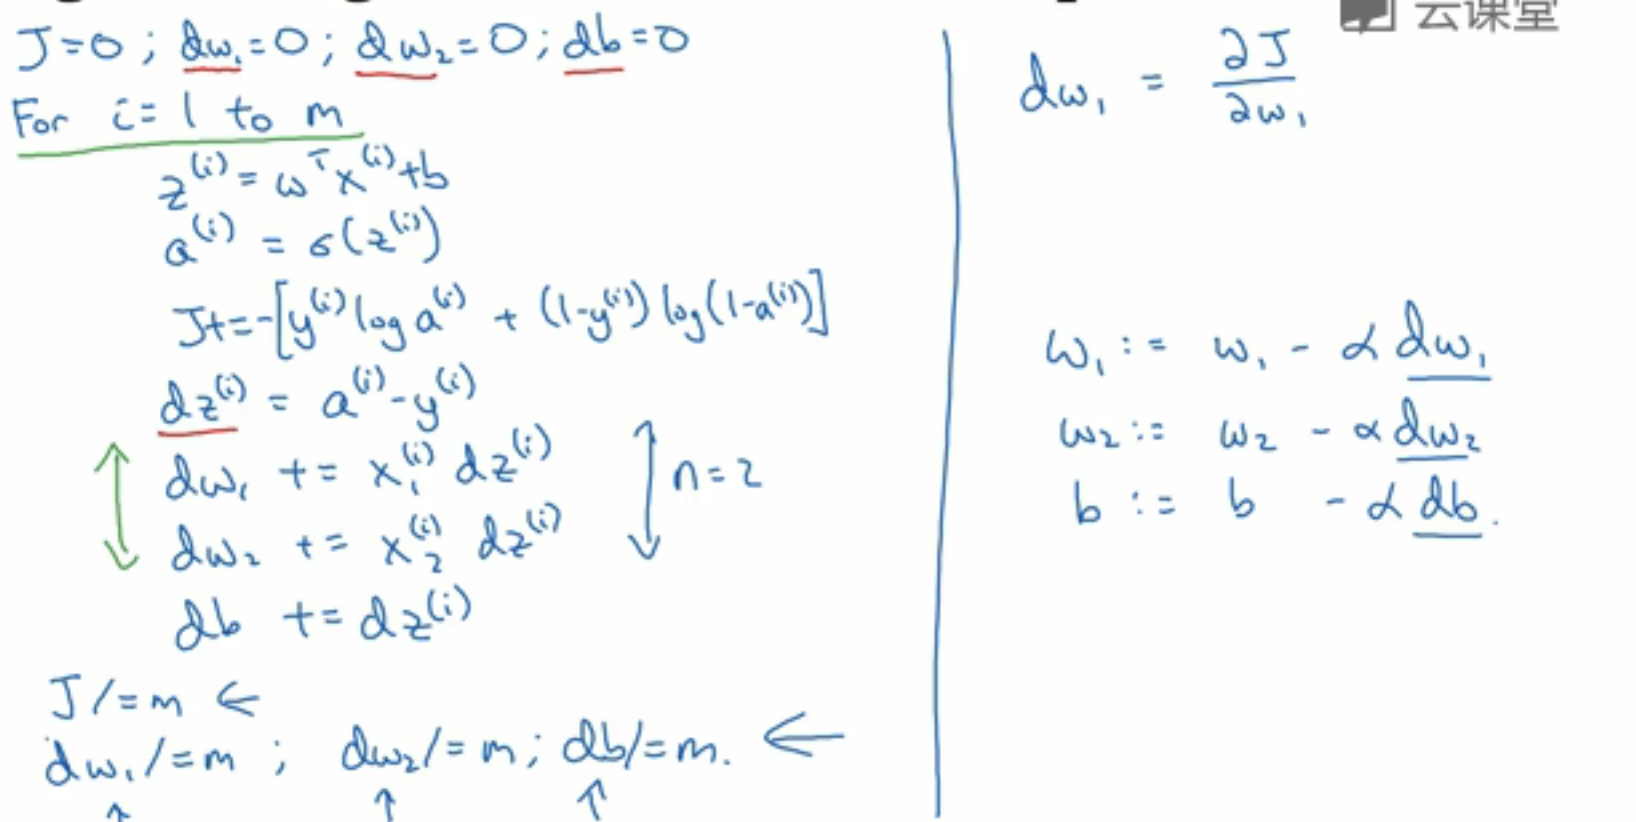 云课堂
J=0; dw₁=0; dw₂=0; db=0
For i=1 to m
z⁽ⁱ⁾ = wᵀx⁽ⁱ⁾+b
a⁽ⁱ⁾ = σ(z⁽ⁱ⁾)
J+=-[y⁽ⁱ⁾ log a⁽ⁱ⁾ + (1-y⁽ⁱ⁾) log(1-a⁽ⁱ⁾)]
dz⁽ⁱ⁾ = a⁽ⁱ⁾-y⁽ⁱ⁾
dw₁ += x₁⁽ⁱ⁾ dz⁽ⁱ⁾
dw₂ += x₂⁽ⁱ⁾ dz⁽ⁱ⁾
n=2
db += dz⁽ⁱ⁾
J/=m ←
dw₁/=m; dw₂/=m; db/=m. ←
dw₁ = ∂J/∂w₁
w₁ := w₁ - α dw₁
w₂ := w₂ - α dw₂
b := b - α db.